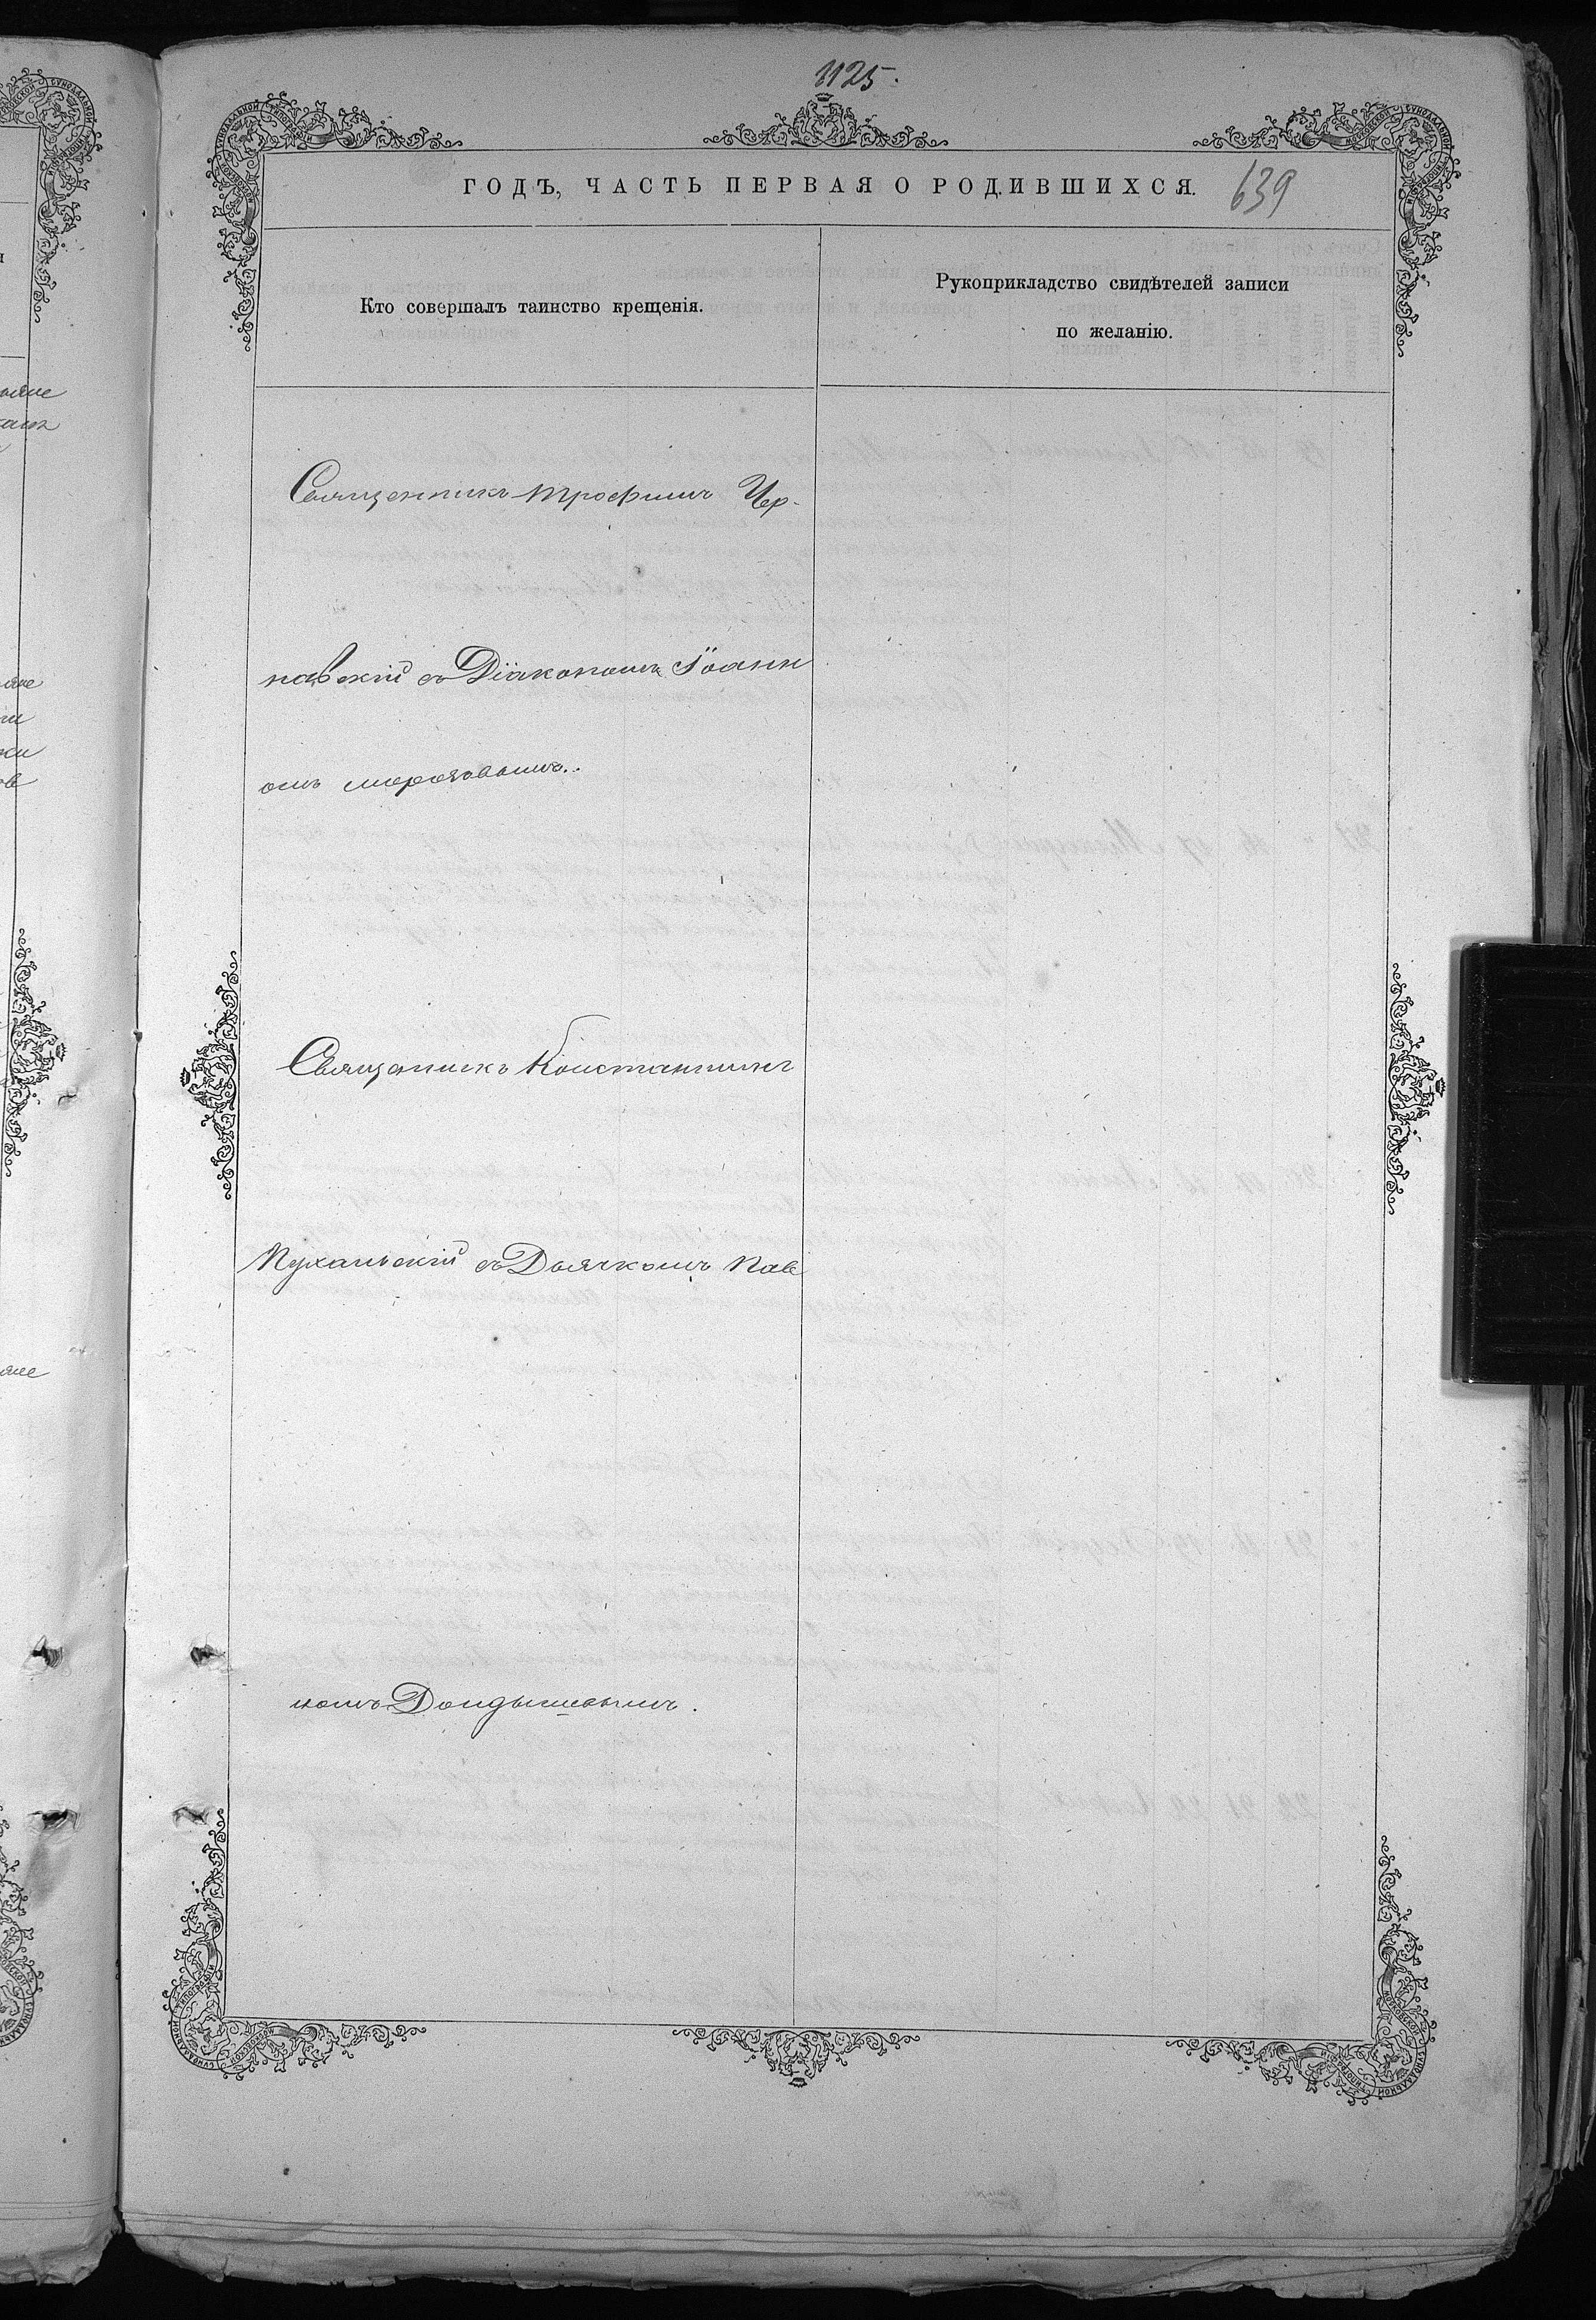 1125.
ГОДЪ, ЧАСТЬ ПЕРВАЯ О РОДИВШИХСЯ. 639
Кто совершалъ таинство крещенія.
Рукоприкладство свидѣтелей записи
по желанію.
Священникъ Трофимъ Чер-
навскій съ Діакономъ Іоанн
омъ Морозовымъ.
Священикъ Константинъ
съ Дьячкомъ Пав